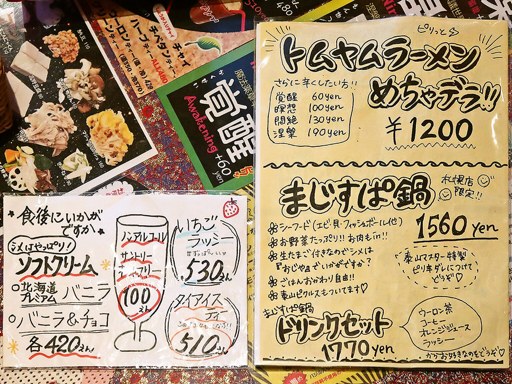 ピリっと
トムヤムラーメン
めちゃデラ!!
さらに辛くしたい方!!
覚醒 60yen
瞑想 100yen
悶絶 130yen
涅槃 190yen
¥1200
まじすぱ鍋
札幌店
限定!!
1560yen
シーフード(エビ・貝・フィッシュボール他)
お野菜たっぷり!! お肉も in!!
生たまご付きなのでシメは
『おじや』でいかがですか?
ごはんおかわり自由!!
南山ピクルスもついてます♡
特製
ピリ辛ダレにつけて
どうぞ♡
まじすぱ鍋
ドリンクセット
1770yen
ウーロン茶
コーヒー
オレンジジュース
ラッシー
からお好きなのをどうぞ♡
食後にいかが
ですか
シメはやっぱり!
ソフトクリーム
北海道
プレミアム バニラ
バニラ&チョコ
各420えん
ノンアルコール
サントリー
100えん
いちご
ラッシー
530えん
タイアイス
ティー
510えん
覚醒
Awakening
+60
yen